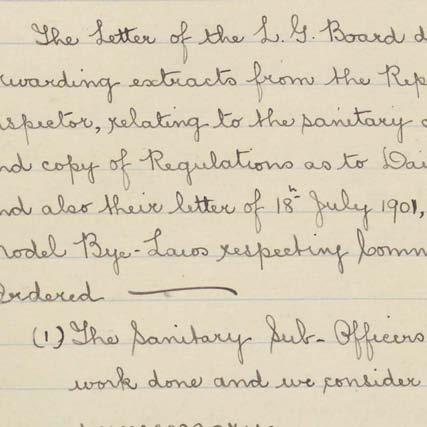 The Letter of the L. G. Board d
rwarding extracts from the Rep
nspector, relating to the sanitary c
nd copy of Regulations as to Dai
nd also their letter of 18th July 1901,
nodel Bye-Laws respecting Comm
Ordered
(1) The Sanitary Sub-Officers
work done and we consider